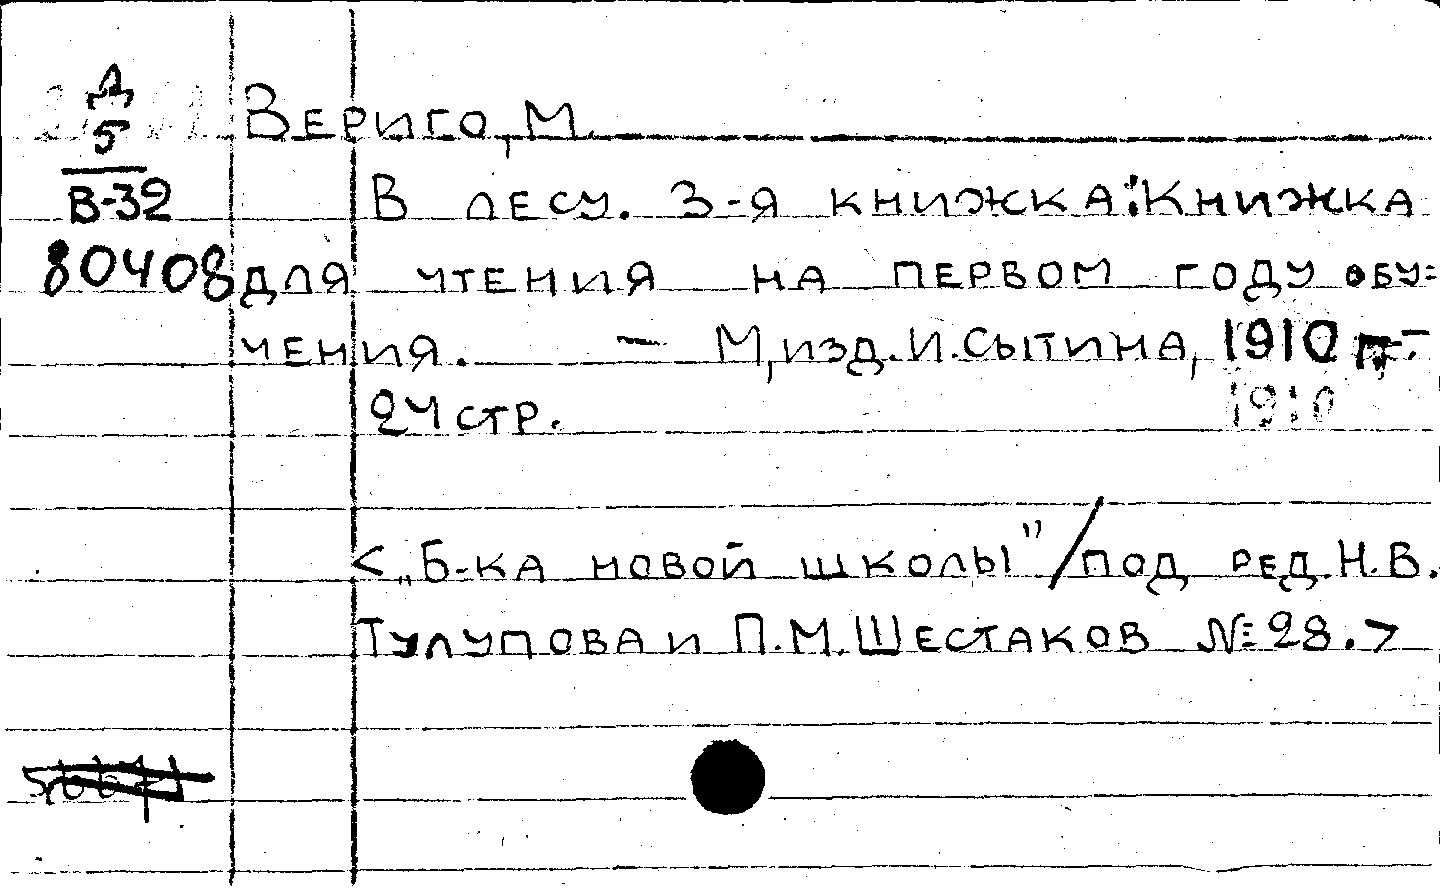 Д
5
В-32
80408
Вериго, М.
В лесу. 3-я книжка: Книжка
для чтения на первом году обу=
чения. — М, изд. И. Сытина, 1910 г.-
1910
24 стр.
<„Б-ка новой школы"/под ред. Н. В.
Тулупова и П. М. Шестаков №28.>